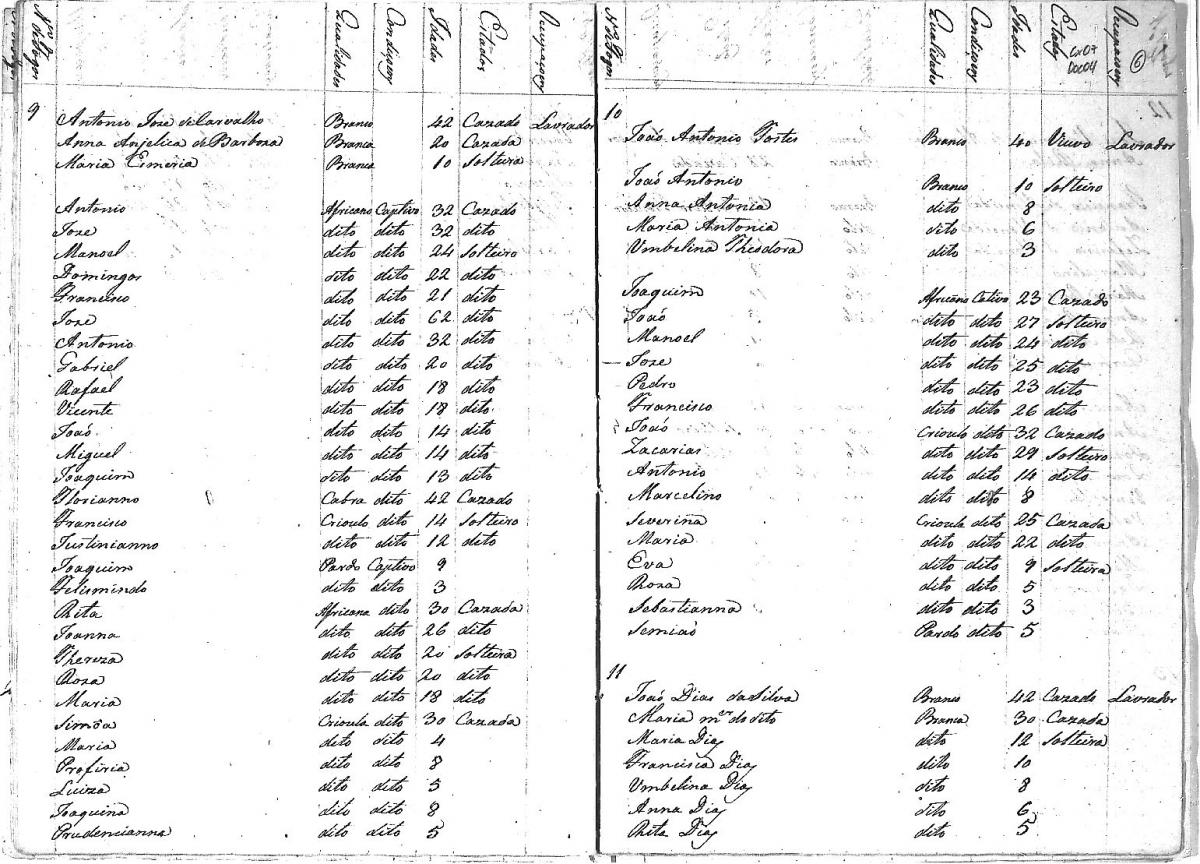 Nos. de Fogos Qualidades Condiçoes Idades Estados Ocupaçoes
9
Antonio Joze de Carvalho Branco 42 Cazado Lavrador
Anna Anjelica de Barboza Branca 20 Cazada
Maria Ermeria Branca 10 Solteira
Antonio Africano Captivo 32 Cazado
Joze dito dito 32 dito
Manoel dito dito 24 Solteiro
Domingos dito dito 22 dito
Francisco dito dito 21 dito
Joze dito dito 62 dito
Antonio dito dito 32 dito
Gabriel dito dito 20 dito
Rafael dito dito 18 dito
Vicente dito dito 18 dito
Joaõ dito dito 14 dito
Miguel dito dito 14 dito
Joaquim dito dito 13 dito
Florianno Cabra dito 42 Cazado
Francisco Crioulo dito 14 Solteiro
Justinianno dito dito 12 dito
Joaquim Pardo Captivo 9
Felismindo dito dito 3
Rita Africana dito 30 Cazada
Joanna dito dito 26 dito
Thereza dito dito 20 Solteira
Roza dito dito 20 dito
Maria dito dito 18 dito
Simôa Crioula dito 30 Cazada
Maria dito dito 4
Profiria dito dito 8
Luiza dito dito 5
Joaquina dito dito 8
Prudencianna dito dito 5
Nos. de Fogos Qualidades Condiçoes Idades Estados Ocupaçoes
Cx07
Doc04
6
10
Joaõ Antonio Fortes Branco 40 Viuvo Lavrador
Joaõ Antonio Branco 10 Solteiro
Anna Antonia dito 8
Maria Antonia dito 6
Umbelina Theodora dito 3
Joaquim Africano Cativo 23 Cazado
Joaõ dito dito 27 Solteiro
Manoel dito dito 24 dito
Joze dito dito 25 dito
Pedro dito dito 23 dito
Francisco dito dito 26 dito
Joaõ Crioulo dito 32 Cazado
Zacarias dito dito 29 Solteiro
Antonio dito dito 14 dito
Marcelino dito dito 8
Severina Crioula dito 25 Cazada
Maria dito dito 22 dito
Eva dito dito 9 Solteira
Roza dito dito 5
Sebastianna dito dito 3
Semiaõ Pardo dito 5
11
Joaõ Dias da Silva Branco 42 Cazado Lavrador
Maria mer do dito Branca 30 Cazada
Maria Dias dito 12 Solteira
Francisca Dias dito 10
Umbelina Dias dito 8
Anna Dias dito 6
Rita Dias dito 5